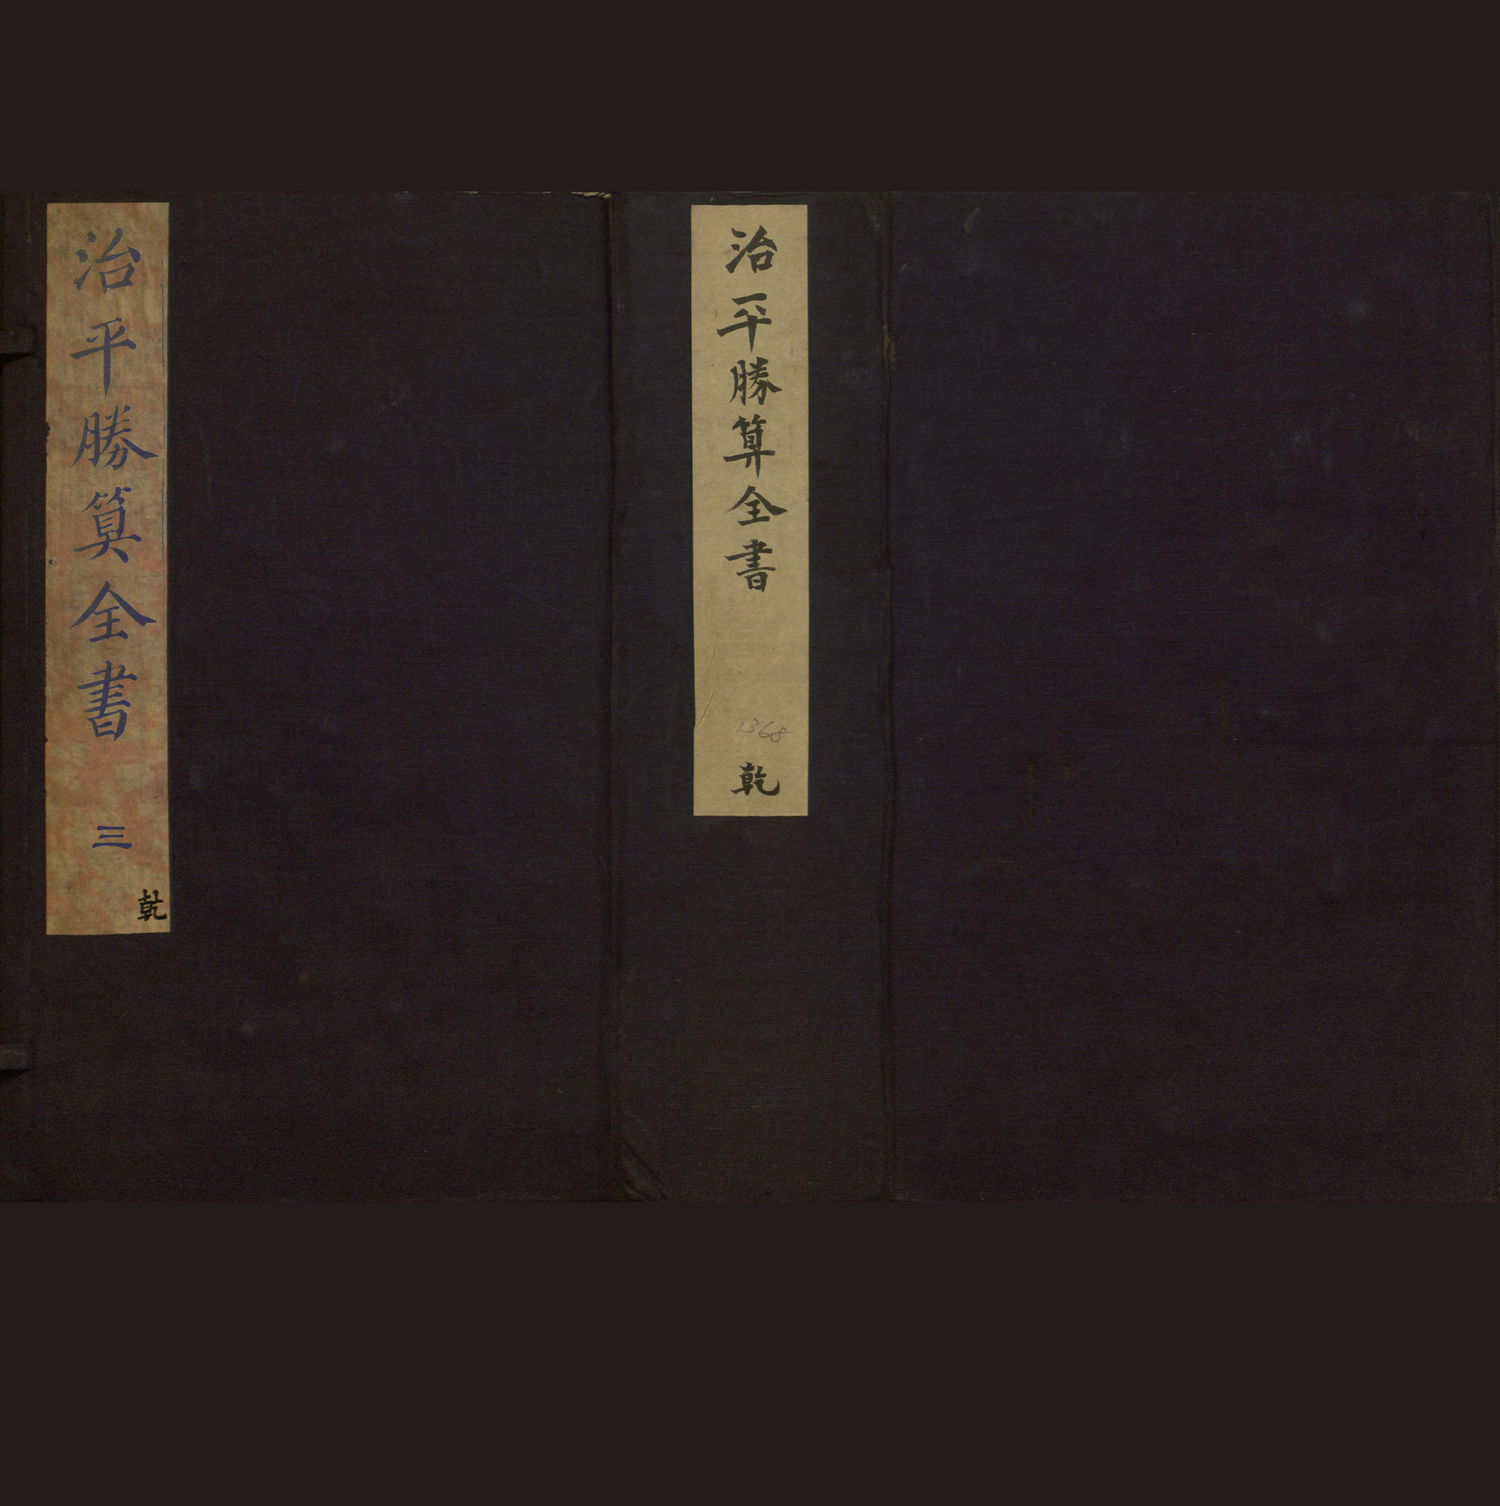 治平勝算全書
1368
乾
治平勝筭全書
三
乾